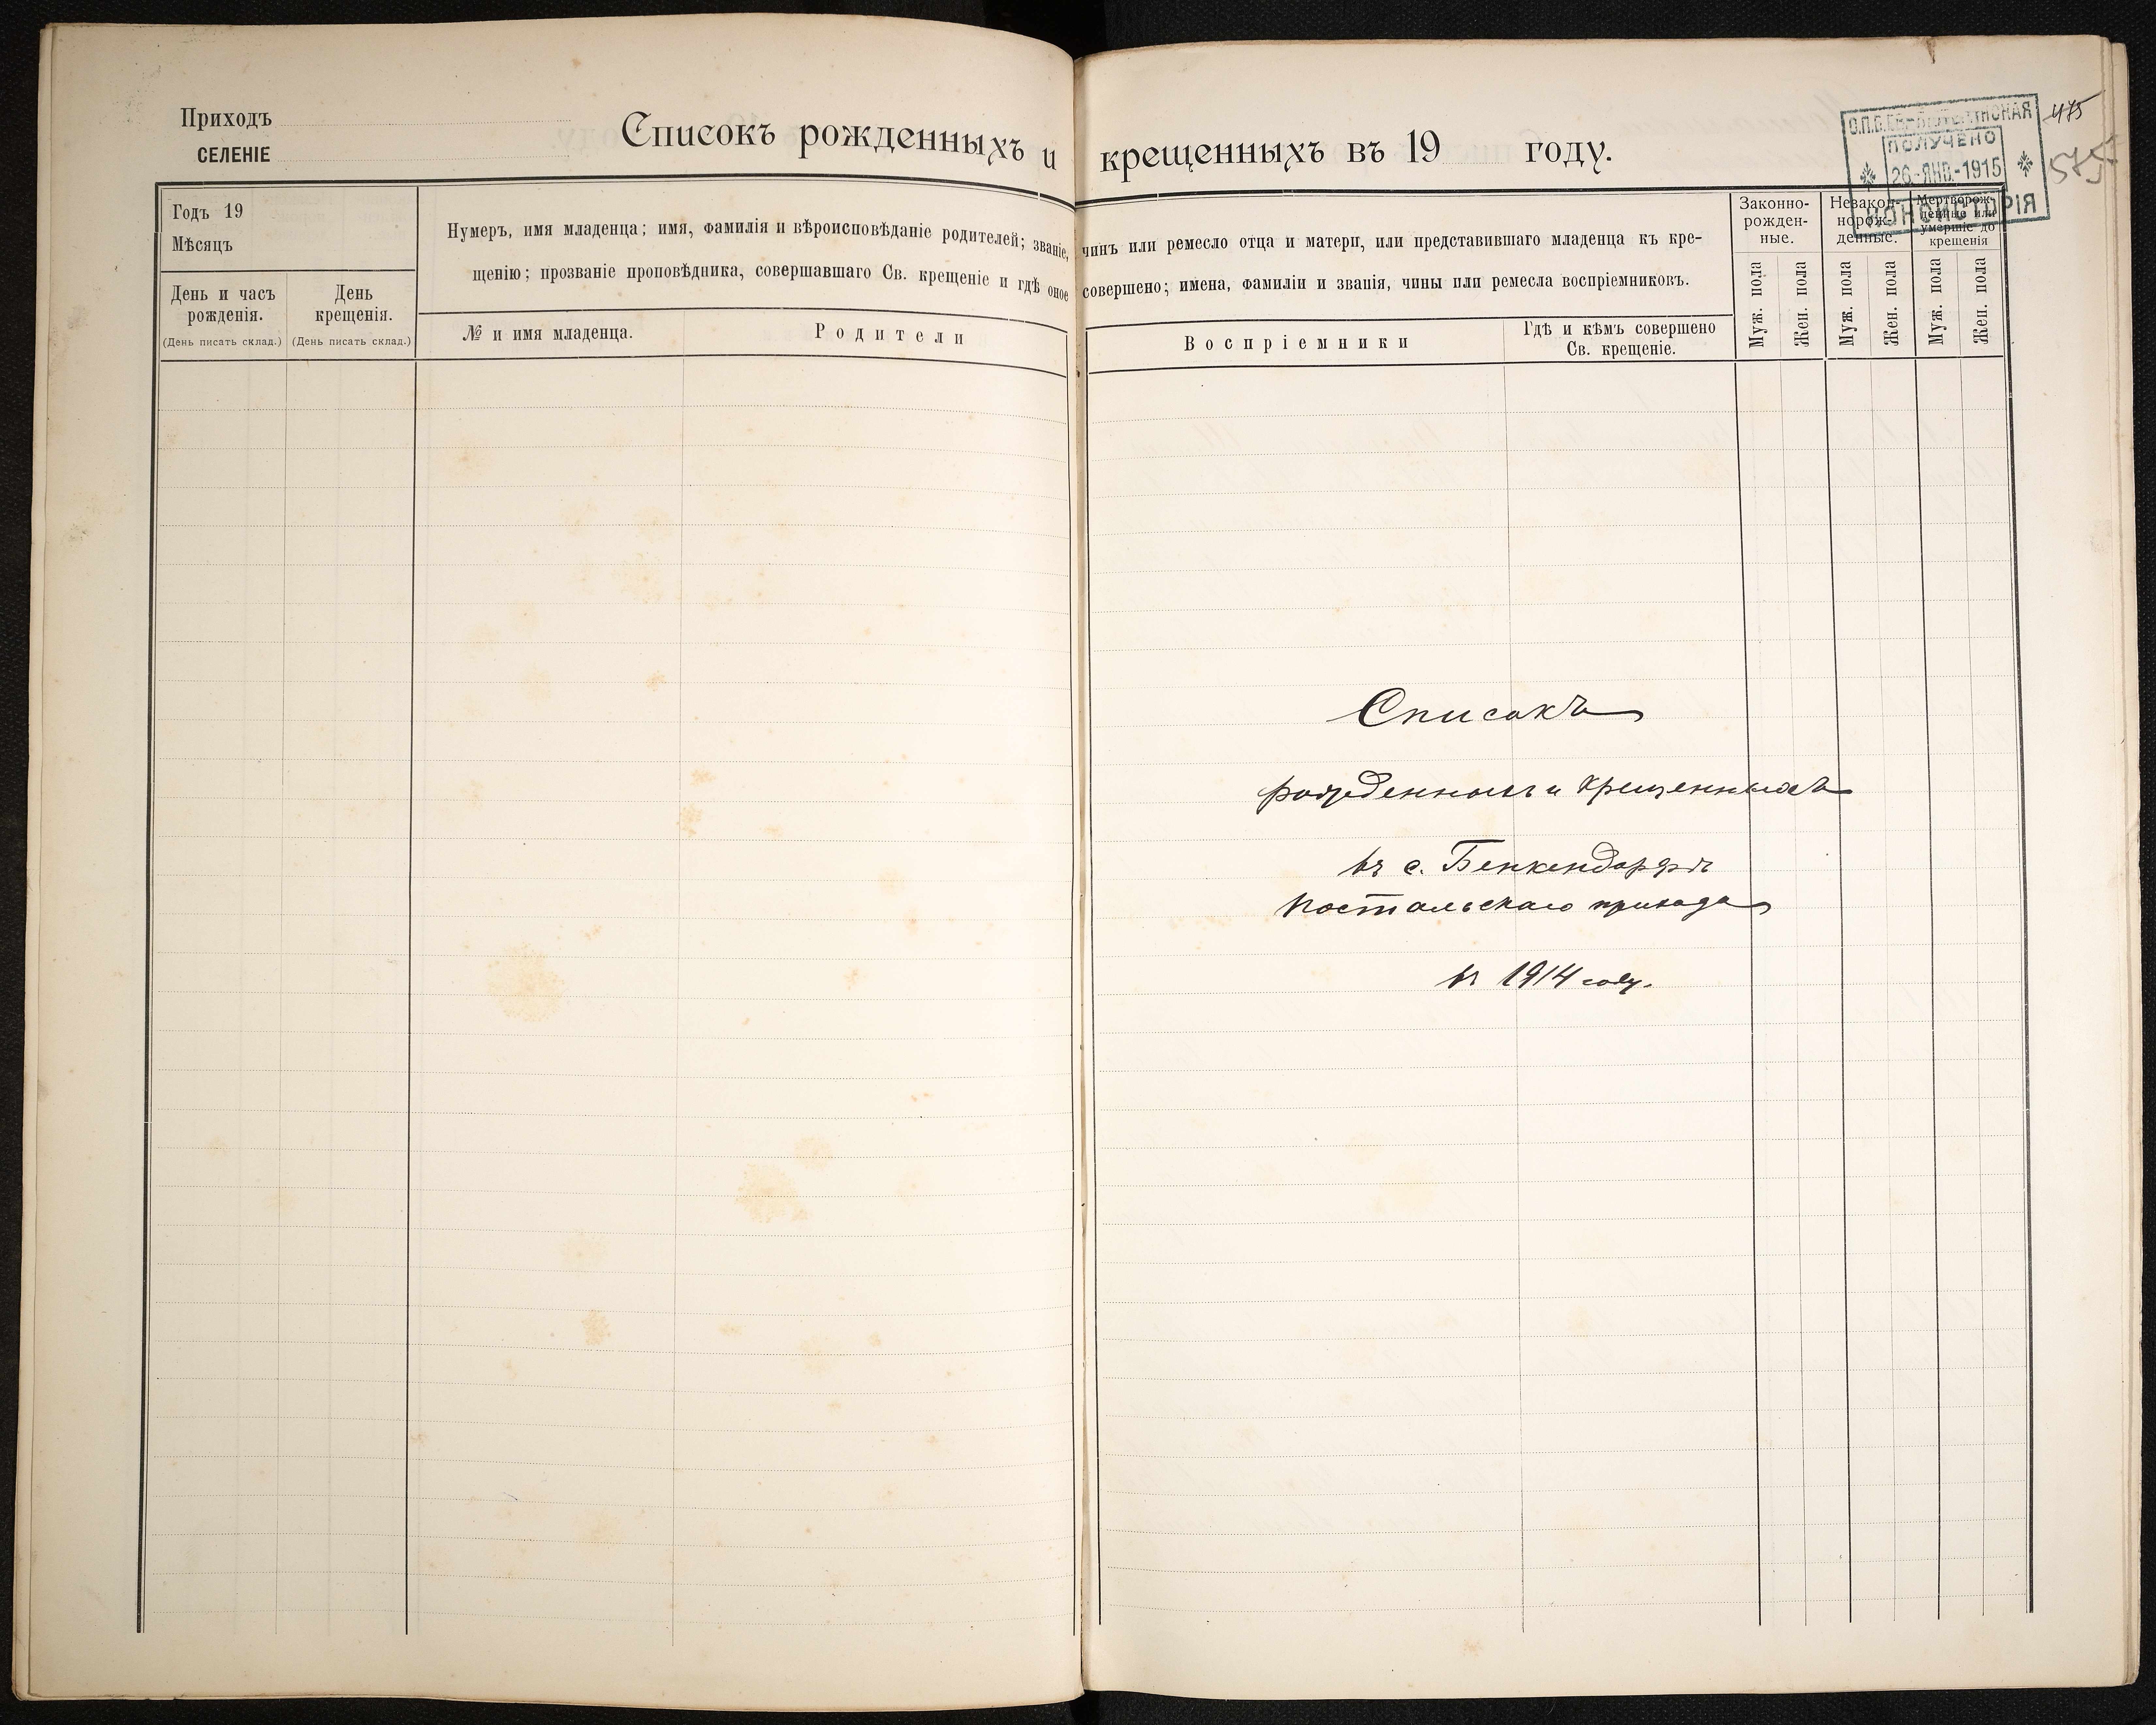 Приходъ
СЕЛЕНІЕ
Списокъ рожденныхъ и крещенныхъ въ 19 году.
ПОЛУЧЕНО
26-ЯНВ.-1915
КОНСИСТОРІЯ
475
Годъ 19
Мѣсяцъ
День и часъ
рожденія.
(День писать склад.)
День
крещенія.
(День писать склад.)
Нумеръ, имя младенца; имя, фамилія и вѣроисповѣданіе родителей; званіе, чинъ или ремесло отца и матери, или представившаго младенца къ кре-
щенію; прозваніе проповѣдника, совершавшаго Св. крещеніе и гдѣ оное совершено; имена, фамиліи и званія, чины или ремесла воспріемниковъ.
№ и имя младенца.
Родители
Воспріемники
Гдѣ и кѣмъ совершено
Св. крещеніе.
Законно-
рожден-
ные.
Незакон-
норож-
денные.
Мертворож-
денные или
умершіе до
крещенія
Муж. пола
Жен. пола
Муж. пола
Жен. пола
Муж. пола
Жен. пола
Списокъ
рожденныхъ и крещенныхъ
въ с. Бенкендорфъ
Постальскаго прихода
въ 1914 году.